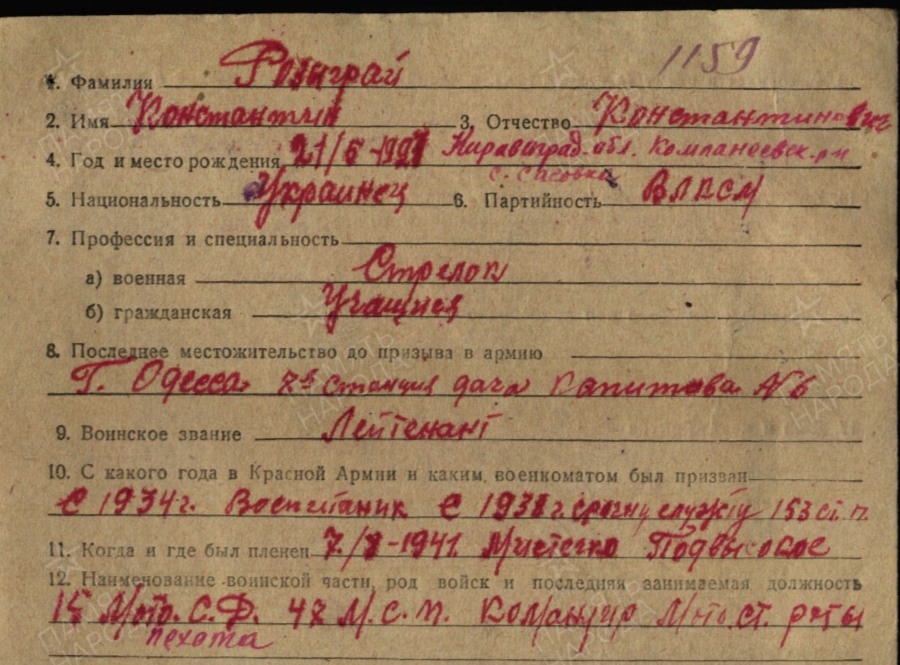 1159
1. Фамилия Розиграй
2. Имя Константин 3. Отчество Константинович
4. Год и место рождения 21/5-1921 Кировоград. обл. Компанеевск. р-н
с. Сасовка
5. Национальность Украинец 6. Партийность ВЛКСМ
7. Профессия и специальность
а) военная Стрелок
б) гражданская Учащийся
8. Последнее местожительство до призыва в армию
Г. Одесса 7я станция дача Капитова № 6
9. Воинское звание Лейтенант
10. С какого года в Красной Армии и каким военкоматом был призван
С 1934г. Воспитаник С 193 г срочну службу 153 ст. п.
11. Когда и где был пленен 7/8-1941 Мистечко Подвысокое
12. Наименование воинской части, род войск и последняя занимаемая должность
15 Мото. С.Д. 47 М.С.П. Командир Мото. ст. роты
пехота
ПАМЯТЬ НАРОДА